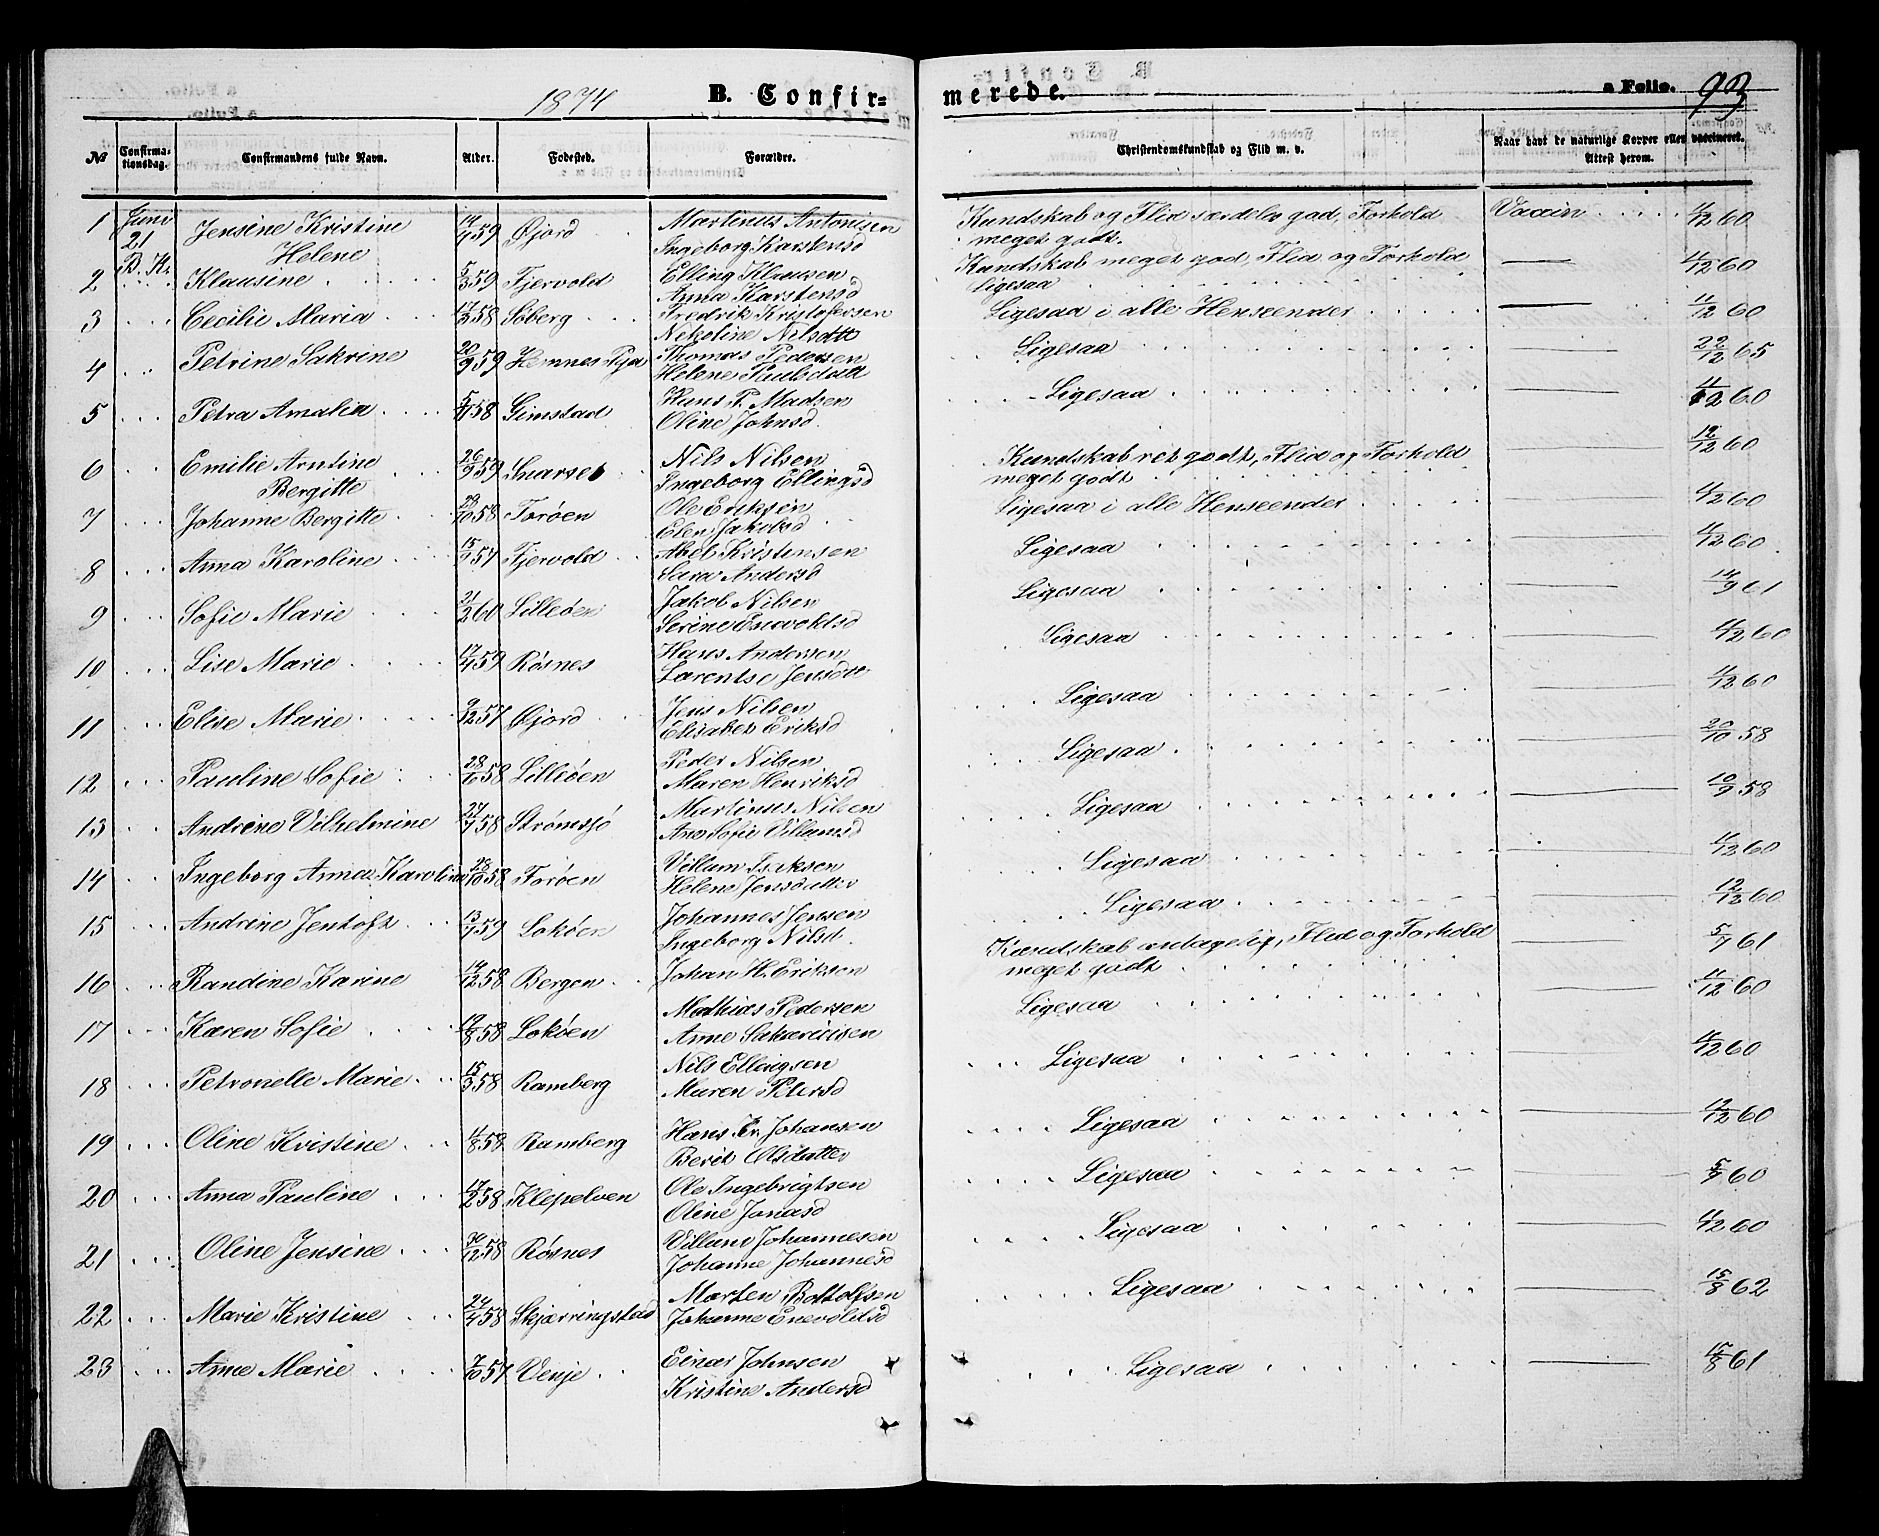 1874 B. Confir=
merede. a Folio. 93
№ Confirmationsdag. Confirmandens fulde Navn. Alder. Fødested. Forældre. Christendomskundskab og Flid m. v. Naar havt de naturlige Kopper eller vaccineret. Attest herom.
1 Juni 21 Jensine Kristine Helene 14/4 59 Øjord Martinus Antonisen Kundskab og Flid særdeles god, Forhold Vaccin 4/12 60
Ingeborg Karstensd meget godt.
2 B. K. Klausine 5/3 59 Fjervold Elling Klausen Kundskab meget god, Flid og Forhold 4/12 60
Anna Karstensd ligesaa
3 Cecilie Maria 17/3 58 Søberg Fredrik Kristofersen Ligesaa i alle Henseender 11/12 60
Nikoline Nilsdtt
4 Petrine Sakrine 20/9 59 Hemnes Thomas Pedersen Ligesaa 22/12 65
Helene Paulsdatt
5 Petra Amalia 5/11 58 Gimstad Hans P. Madsen Ligesaa 4/12 60
Oline Johnsd.
6 Emilie Arntine Bergitte 26/9 59 Nils Nilsen Kundskab ret godt, Flid og Forhold 12/12 60
Ingeborg Ellingsd meget godt
7 Johanne Bergitte 29/10 58 Forøen Ole Eriksen Ligesaa i alle Henseender 4/12 60
Elen Jakobsd
8 Anna Karoline 15/9 57 Fjervold Abel Kristensen Ligesaa 4/12 60
Sara Andersd
9 Sofie Marie 21/2 60 Lilleøen Jakob Nilsen Ligesaa 14/9 61
Serine Enevoldsd
10 Lise Marie 17/4 59 Røsnes Hans Andersen Ligesaa 4/12 60
Larentse Jensdtt
11 Elise Marie 9/12 57 Øjord Jens Nilsen Ligesaa 4/12 60
Elisabet Eriksd
12 Pauline Sofie 28/6 58 Lilleøen Peder Nilsen Ligesaa 20/10 58
Maren Henriksd
13 Andrine Vilhelmine 24/7 58 Strømsjø Martinus Nilsen Ligesaa 10/9 58
Ane Sofie Villumsd
14 Ingeborg Anna Karoline 28/10 58 Forøen Villum Isaksen Ligesaa 4/12 60
Helene Jensdatter
15 Andrine Jentoft 13/7 59 Lokøen Johannes Jensen Ligesaa 12/12 60
Ingeborg Nilsd.
16 Randine Karine 14/12 58 Bergen Johan H. Eriksen Kundskab antagelig, Flid og Forhold 5/7 61
meget godt
17 Karen Sofie 19/8 58 Lokøen Mathias Pedersen Ligesaa 11/12 60
Anne Sakariasen
18 Petronelle Marie 15/3 58 Ramberg Nils Ellingsen Ligesaa 4/12 60
Maren Petersd
19 Oline Kristine 4/8 58 Ramberg Hans Kr. Johansen Ligesaa 12/12 60
Berit Olsdatter
20 Anna Pauline 17/2 58 Klepelven Ole Ingebrigtsen Ligesaa 5/9 60
Oline Jonasd
21 Oline Jensine 30/12 58 Røsnes Villum Johannesen Ligesaa 4/12 60
Johanne Johannesd
22 Marie Kristine 24/4 58 Skjærringstad Morten Bottolfsen Ligesaa 15/8 62
Johanne Enevoldsd
23 Anne Marie 7/10 57 Venje Einar Johnsen Ligesaa 15/8 61
Kristine Andersd